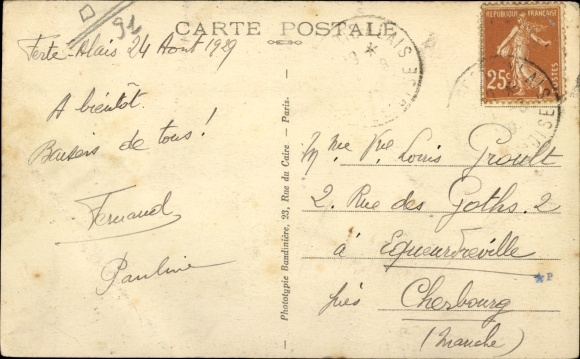 91
CARTE POSTALE
Ferté-Alais 24 Août 1929
A bientôt.
Baisers de tous!
Fernand
Pauline
Phototypie Bandinière, 23, Rue du Caire - Paris.
REPUBLIQUE FRANÇAISE
25c
POSTES
Mme Vve Louis Groult
2. Rue des Goths. 2
à Equeurdreville
P
près Cherbourg
(Manche)